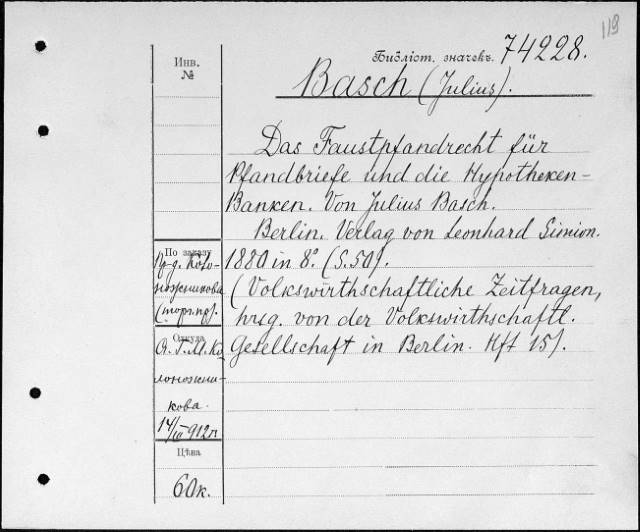 119
Инв.
№
Библіот. значекъ. 74228.
Basch (Julius).
Das Faustpfandrecht für
Pfandbriefe und die Hypotheken-
Banken. Von Julius Basch.
Berlin. Verlag von Leonhard Simion.
1880 in 8º. (S. 50).
(Volkswirthschaftliche Zeitfragen,
hrsg. von der Volkswirthschaftl.
Gesellschaft in Berlin. Hft 15).
По заказу
(торг. пр).
Откуда
кова.
14/III 912 г
Цѣна
60 к.